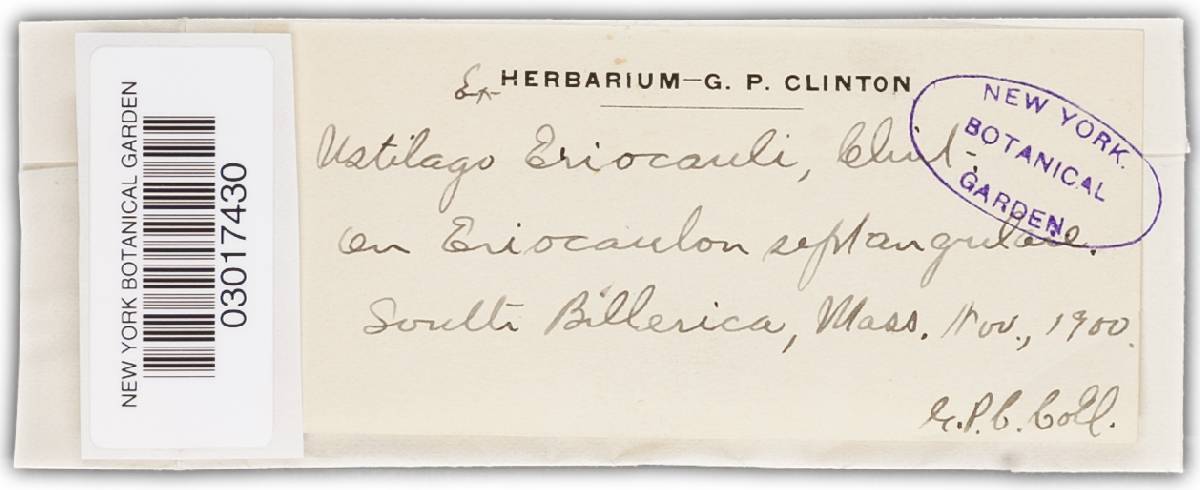 NEW YORK BOTANICAL GARDEN
03017430
Ex HERBARIUM—G. P. CLINTON
Ustilago Eriocauli, Clint.
on Eriocaulon septangulare.
South Billerica, Mass. Nov., 1900.
G.P.C. Coll.
NEW YORK.
BOTANICAL
GARDEN